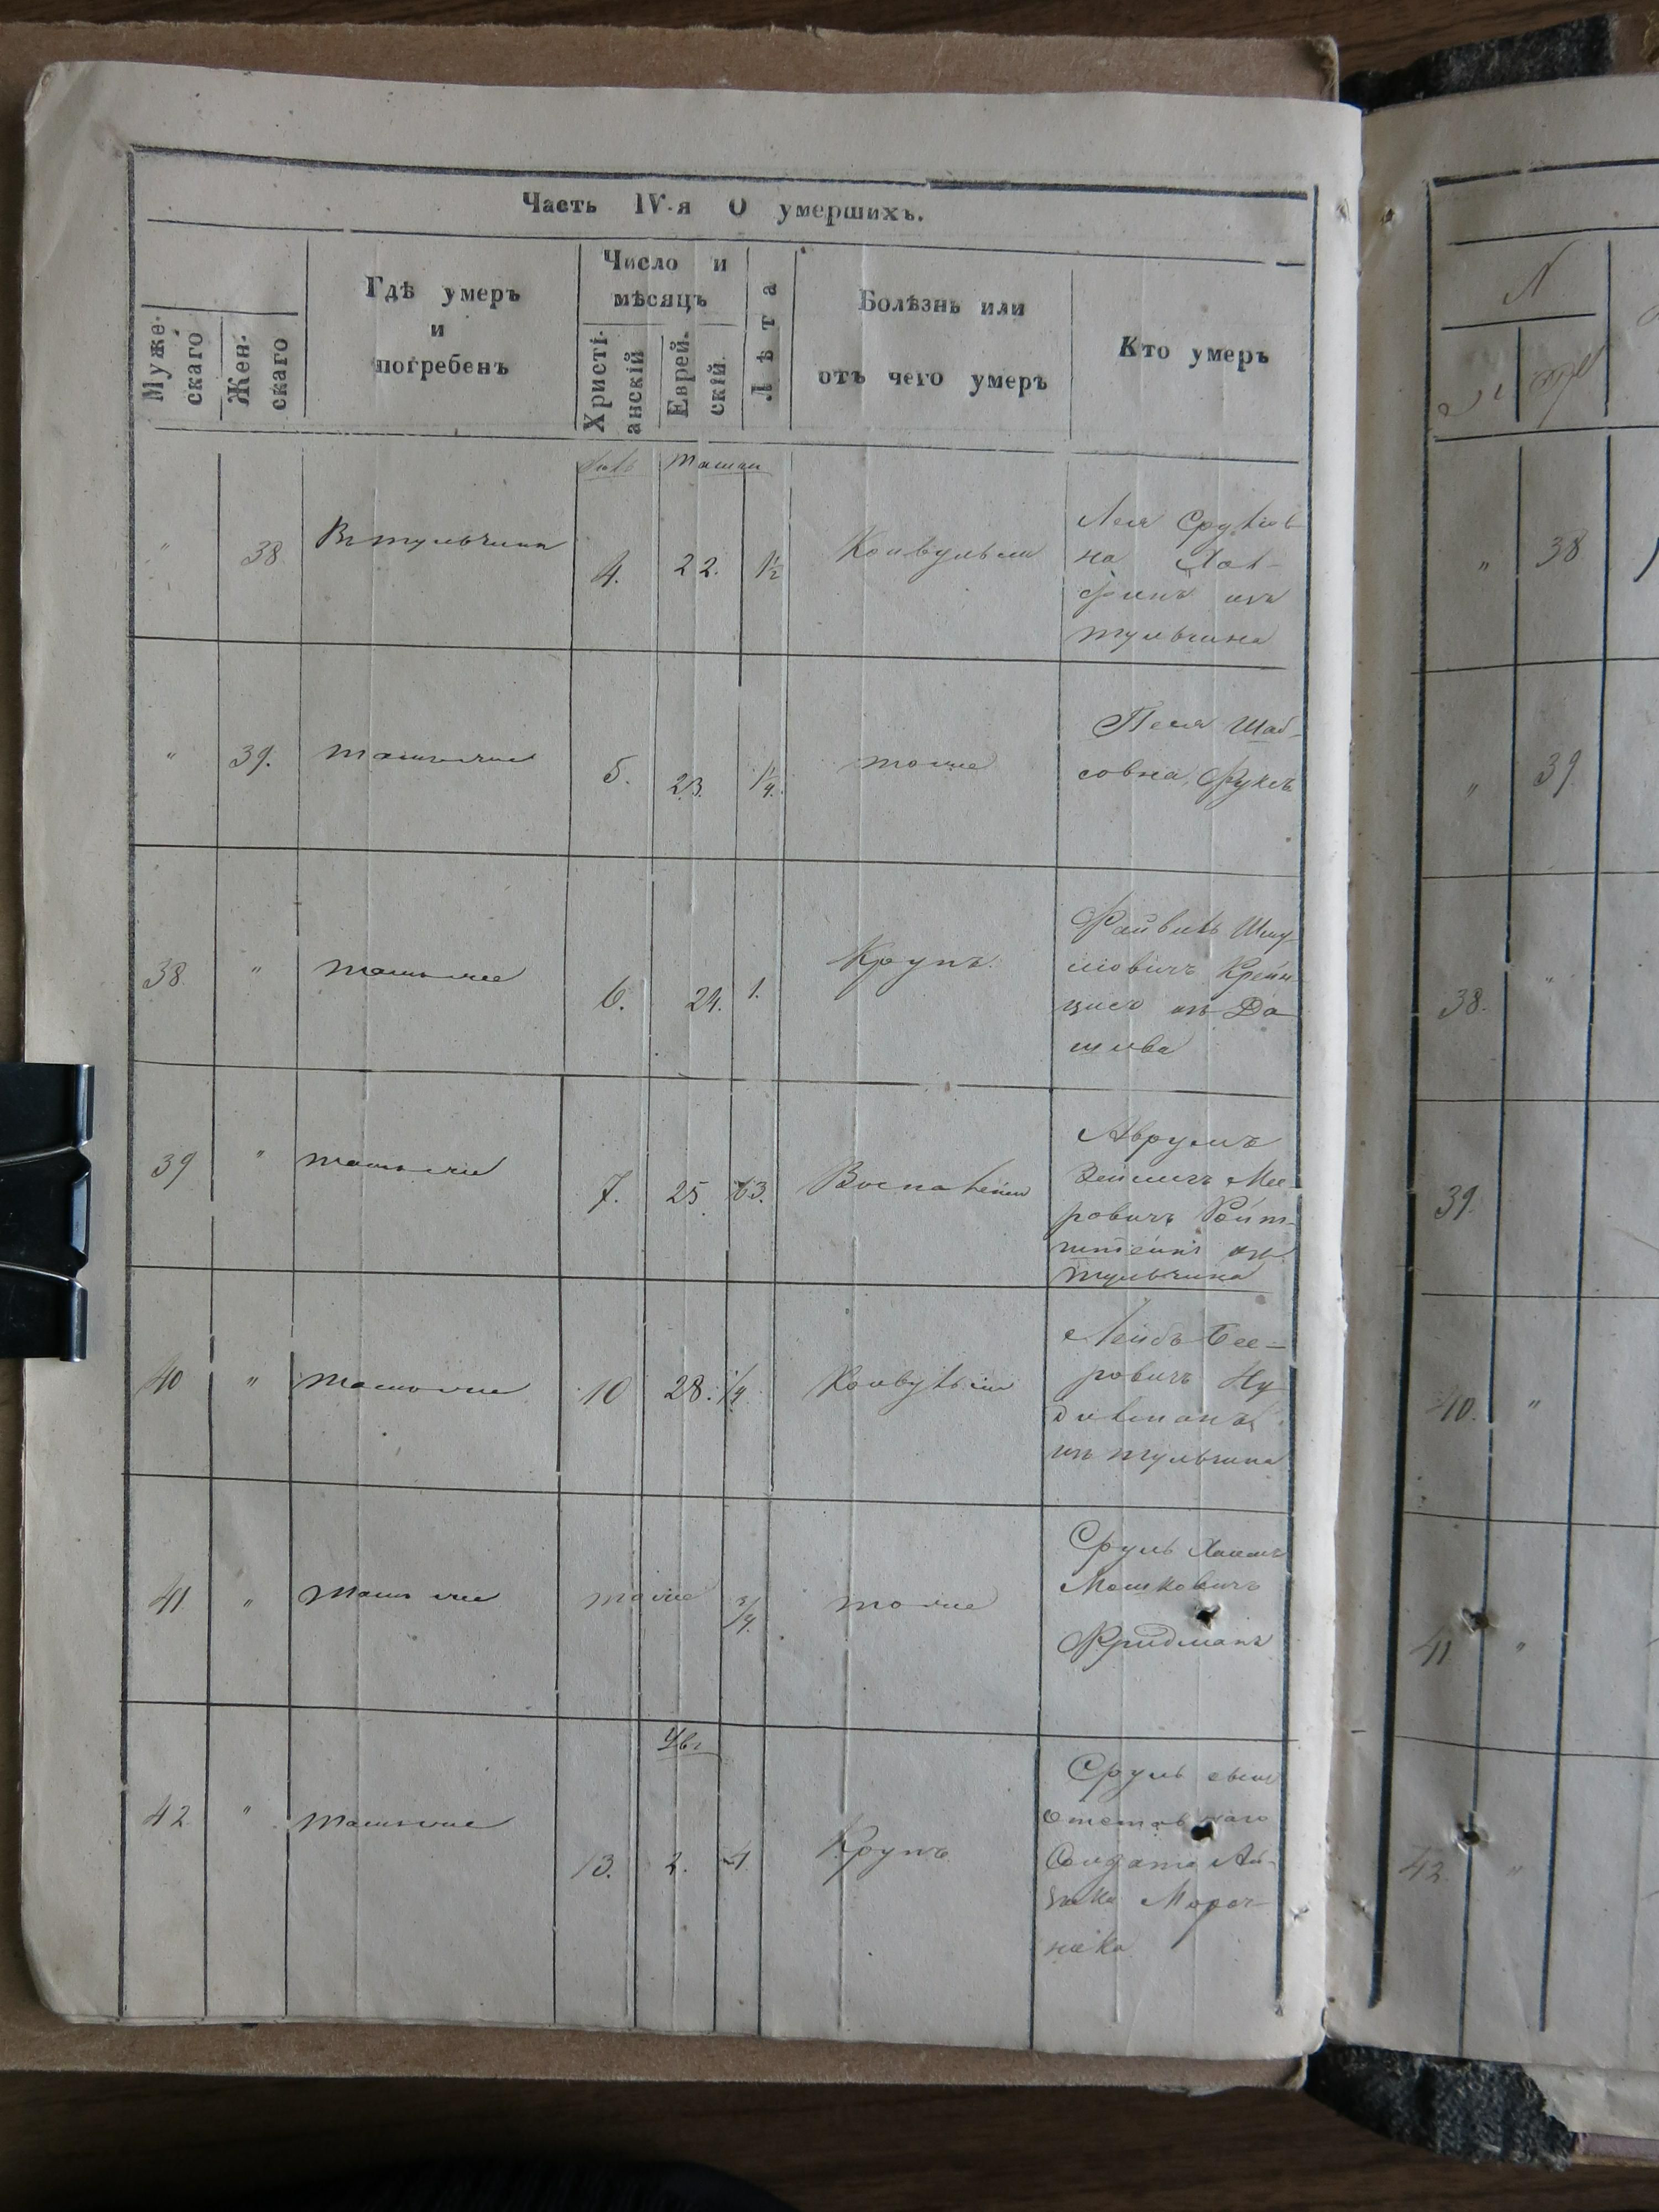 Часть IV-я О умершихъ.
Муже-
скаго
Жен-
скаго
Гдѣ умеръ
и
погребенъ
Число и
мѣсяцъ
Христі-
анскій
Еврей-
скій
Лѣта
Болѣзнь или
отъ чего умеръ
Кто умеръ
" 38 Въ тульчинѣ 4. 22. 1½ Конвульсіи
на
изъ
тульчина
" 39. тамъ-же 5. 23. 1¼. тоже
Песя Шаб-
совна Фуксъ
38. " тамъ-же 6. 24. 1. Крупъ.
Файвель Шму-
ловичъ Крейн-
цисъ изъ Да-
шева
39 " тамъ-же 7. 25. 63. Воспаленіи
Аврумъ
Зейлигъ Мее-
ровичъ Ройт-
штейнъ изъ
тульчина
40 " тамъ-же 10 28. ¼. Конвульсіи
Лейбъ Бее-
ровичъ Ну-
дельманъ
изъ тульчина
41 " тамъ-же тоже ¾. тоже
Сруль Хаимъ
Мошковичъ
Фридманъ
42. " тамъ-же 13. 2. 4. Крупъ
Сруль сынъ
Отставнаго
Солдата Ай-
зика
ника
N
" 38
" 39
38. "
39.
40. "
41 "
42. "